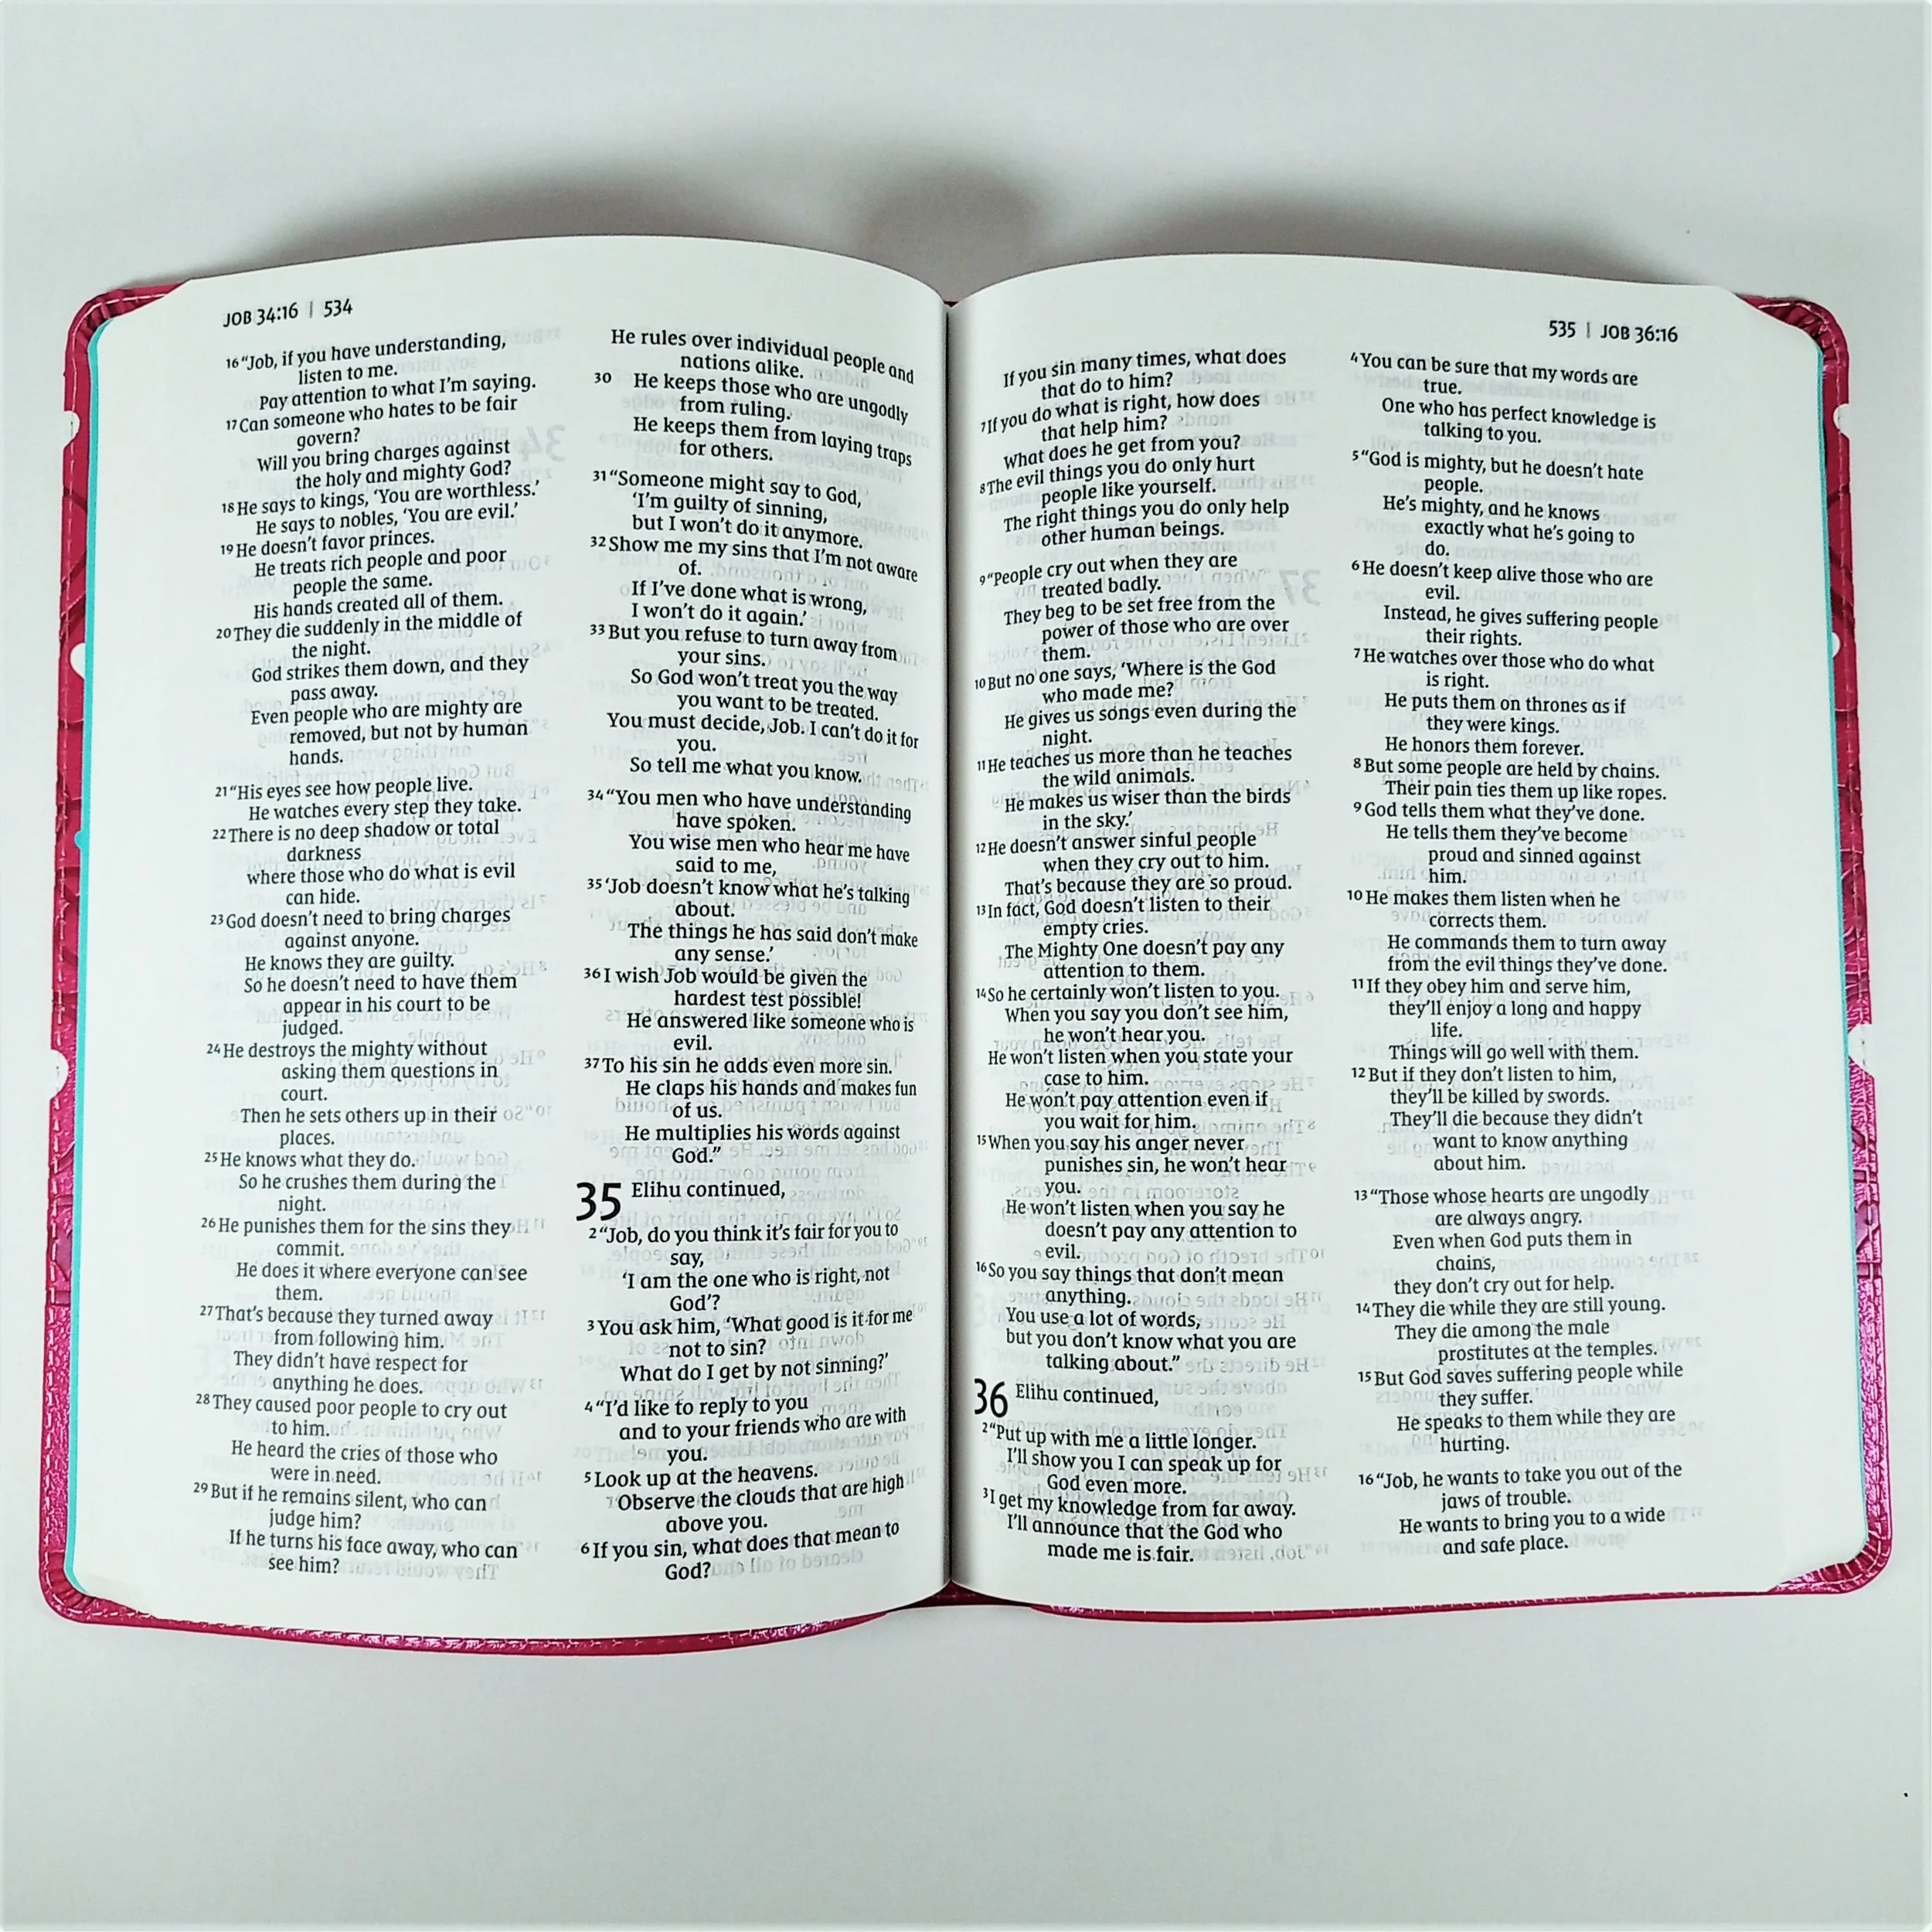 JOB 34:16 | 534
16 “Job, if you have understanding,
listen to me.
Pay attention to what I’m saying.
17 Can someone who hates to be fair
govern?
Will you bring charges against
the holy and mighty God?
18 He says to kings, ‘You are worthless.’
He says to nobles, ‘You are evil.’
19 He doesn’t favor princes.
He treats rich people and poor
people the same.
His hands created all of them.
20 They die suddenly in the middle of
the night.
God strikes them down, and they
pass away.
Even people who are mighty are
removed, but not by human
hands.
21 “His eyes see how people live.
He watches every step they take.
22 There is no deep shadow or total
darkness
where those who do what is evil
can hide.
23 God doesn’t need to bring charges
against anyone.
He knows they are guilty.
So he doesn’t need to have them
appear in his court to be
judged.
24 He destroys the mighty without
asking them questions in
court.
Then he sets others up in their
places.
25 He knows what they do.
So he crushes them during the
night.
26 He punishes them for the sins they
commit.
He does it where everyone can see
them.
27 That’s because they turned away
from following him.
They didn’t have respect for
anything he does.
28 They caused poor people to cry out
to him.
He heard the cries of those who
were in need.
29 But if he remains silent, who can
judge him?
If he turns his face away, who can
see him?
He rules over individual people and
nations alike.
30 He keeps those who are ungodly
from ruling.
He keeps them from laying traps
for others.
31 “Someone might say to God,
‘I’m guilty of sinning,
but I won’t do it anymore.
32 Show me my sins that I’m not aware
of.
If I’ve done what is wrong,
I won’t do it again.’
33 But you refuse to turn away from
your sins.
So God won’t treat you the way
you want to be treated.
You must decide, Job. I can’t do it for
you.
So tell me what you know.
34 “You men who have understanding
have spoken.
You wise men who hear me have
said to me,
35 ‘Job doesn’t know what he’s talking
about.
The things he has said don’t make
any sense.’
36 I wish Job would be given the
hardest test possible!
He answered like someone who is
evil.
37 To his sin he adds even more sin.
He claps his hands and makes fun
of us.
He multiplies his words against
God.”
35 Elihu continued,
2 “Job, do you think it’s fair for you to
say,
‘I am the one who is right, not
God’?
3 You ask him, ‘What good is it for me
not to sin?
What do I get by not sinning?’
4 “I’d like to reply to you
and to your friends who are with
you.
5 Look up at the heavens.
Observe the clouds that are high
above you.
6 If you sin, what does that mean to
God?
535 | JOB 36:16
If you sin many times, what does
that do to him?
7 If you do what is right, how does
that help him?
What does he get from you?
8 The evil things you do only hurt
people like yourself.
The right things you do only help
other human beings.
9 “People cry out when they are
treated badly.
They beg to be set free from the
power of those who are over
them.
10 But no one says, ‘Where is the God
who made me?
He gives us songs even during the
night.
11 He teaches us more than he teaches
the wild animals.
He makes us wiser than the birds
in the sky.’
12 He doesn’t answer sinful people
when they cry out to him.
That’s because they are so proud.
13 In fact, God doesn’t listen to their
empty cries.
The Mighty One doesn’t pay any
attention to them.
14 So he certainly won’t listen to you.
When you say you don’t see him,
he won’t hear you.
He won’t listen when you state your
case to him.
He won’t pay attention even if
you wait for him.
15 When you say his anger never
punishes sin, he won’t hear
you.
He won’t listen when you say he
doesn’t pay any attention to
evil.
16 So you say things that don’t mean
anything.
You use a lot of words,
but you don’t know what you are
talking about.”
36 Elihu continued,
2 “Put up with me a little longer.
I’ll show you I can speak up for
God even more.
3 I get my knowledge from far away.
I’ll announce that the God who
made me is fair.
4 You can be sure that my words are
true.
One who has perfect knowledge is
talking to you.
5 “God is mighty, but he doesn’t hate
people.
He’s mighty, and he knows
exactly what he’s going to
do.
6 He doesn’t keep alive those who are
evil.
Instead, he gives suffering people
their rights.
7 He watches over those who do what
is right.
He puts them on thrones as if
they were kings.
He honors them forever.
8 But some people are held by chains.
Their pain ties them up like ropes.
9 God tells them what they’ve done.
He tells them they’ve become
proud and sinned against
him.
10 He makes them listen when he
corrects them.
He commands them to turn away
from the evil things they’ve done.
11 If they obey him and serve him,
they’ll enjoy a long and happy
life.
Things will go well with them.
12 But if they don’t listen to him,
they’ll be killed by swords.
They’ll die because they didn’t
want to know anything
about him.
13 “Those whose hearts are ungodly
are always angry.
Even when God puts them in
chains,
they don’t cry out for help.
14 They die while they are still young.
They die among the male
prostitutes at the temples.
15 But God saves suffering people while
they suffer.
He speaks to them while they are
hurting.
16 “Job, he wants to take you out of the
jaws of trouble.
He wants to bring you to a wide
and safe place.